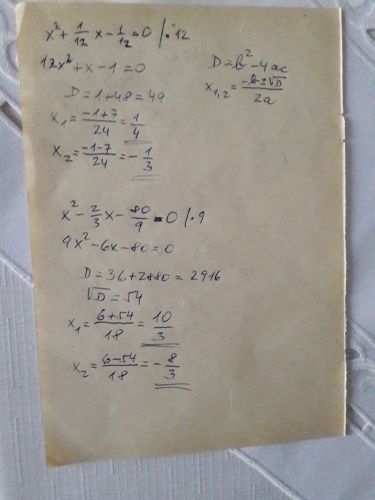 x² + 1/12 x - 1/12 = 0 /·12
12x² + x - 1 = 0
D = b² - 4ac
x₁,₂ = (-b ± √D)/2a
D = 1 + 48 = 49
x₁ = (-1+7)/24 = 1/4
x₂ = (-1-7)/24 = -1/3
x² - 2/3 x - 80/9 = 0 /·9
9x² - 6x - 80 = 0
D = 36 + 2880 = 2916
√D = 54
x₁ = (6+54)/18 = 10/3
x₂ = (6-54)/18 = -8/3